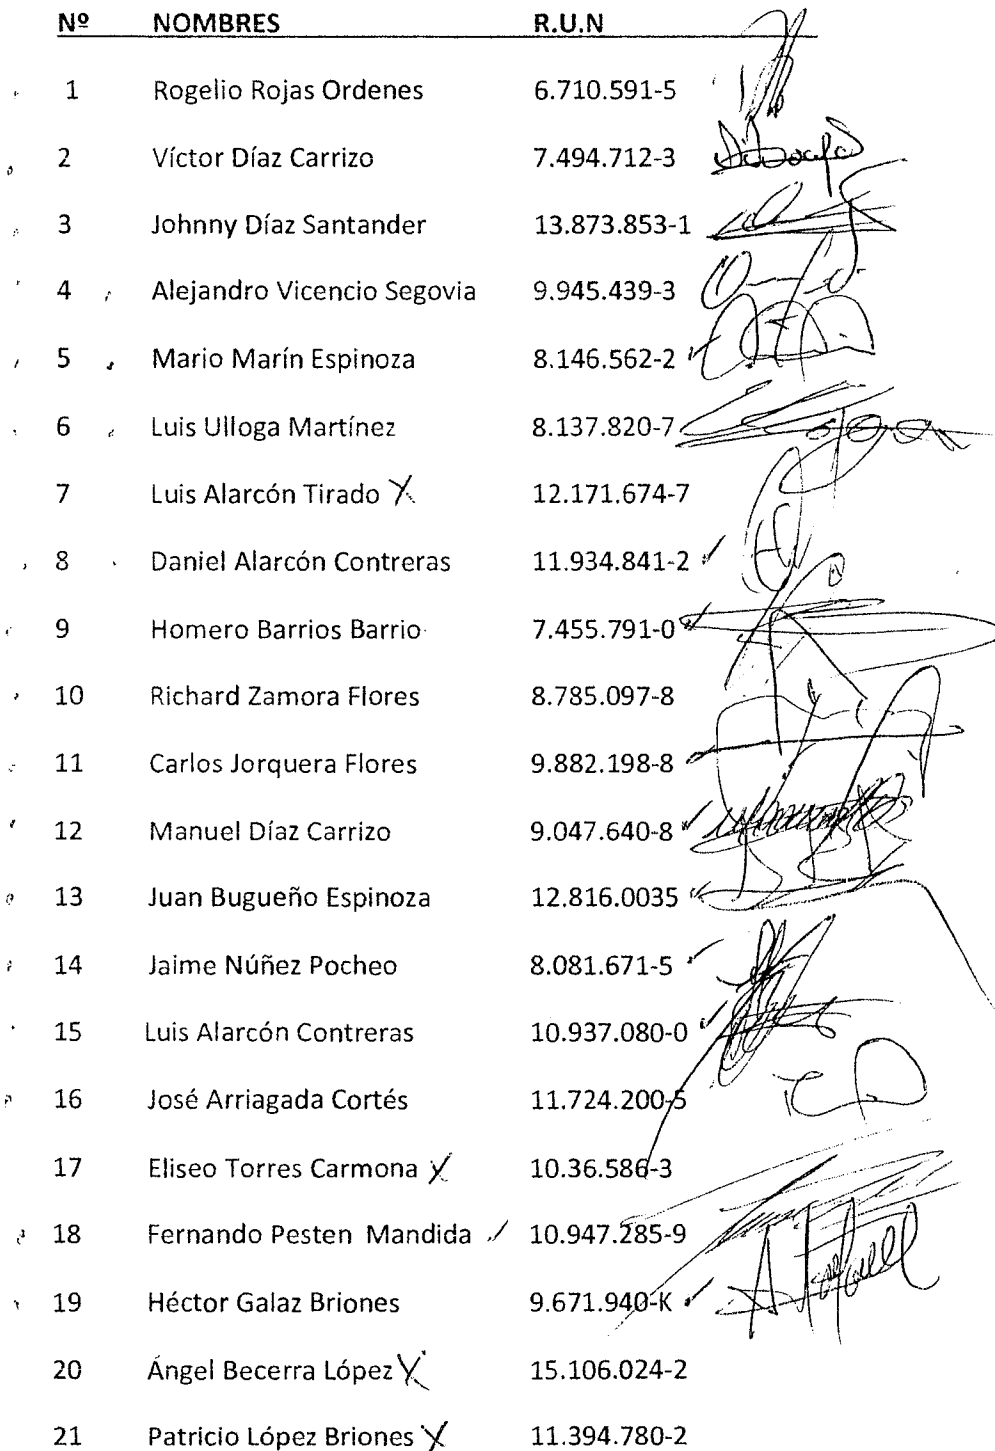 Nº NOMBRES R.U.N
1 Rogelio Rojas Ordenes 6.710.591-5
2 Víctor Díaz Carrizo 7.494.712-3
3 Johnny Díaz Santander 13.873.853-1
4 Alejandro Vicencio Segovia 9.945.439-3
5 Mario Marín Espinoza 8.146.562-2
6 Luis Ulloga Martínez 8.137.820-7
7 Luis Alarcón Tirado X 12.171.674-7
8 Daniel Alarcón Contreras 11.934.841-2
9 Homero Barrios Barrio 7.455.791-0
10 Richard Zamora Flores 8.785.097-8
11 Carlos Jorquera Flores 9.882.198-8
12 Manuel Díaz Carrizo 9.047.640-8
13 Juan Bugueño Espinoza 12.816.0035
14 Jaime Núñez Pocheo 8.081.671-5
15 Luis Alarcón Contreras 10.937.080-0
16 José Arriagada Cortés 11.724.200-5
17 Eliseo Torres Carmona X 10.36.586-3
18 Fernando Pesten Mandida 10.947.285-9
19 Héctor Galaz Briones 9.671.940-K
20 Ángel Becerra López X 15.106.024-2
21 Patricio López Briones X 11.394.780-2